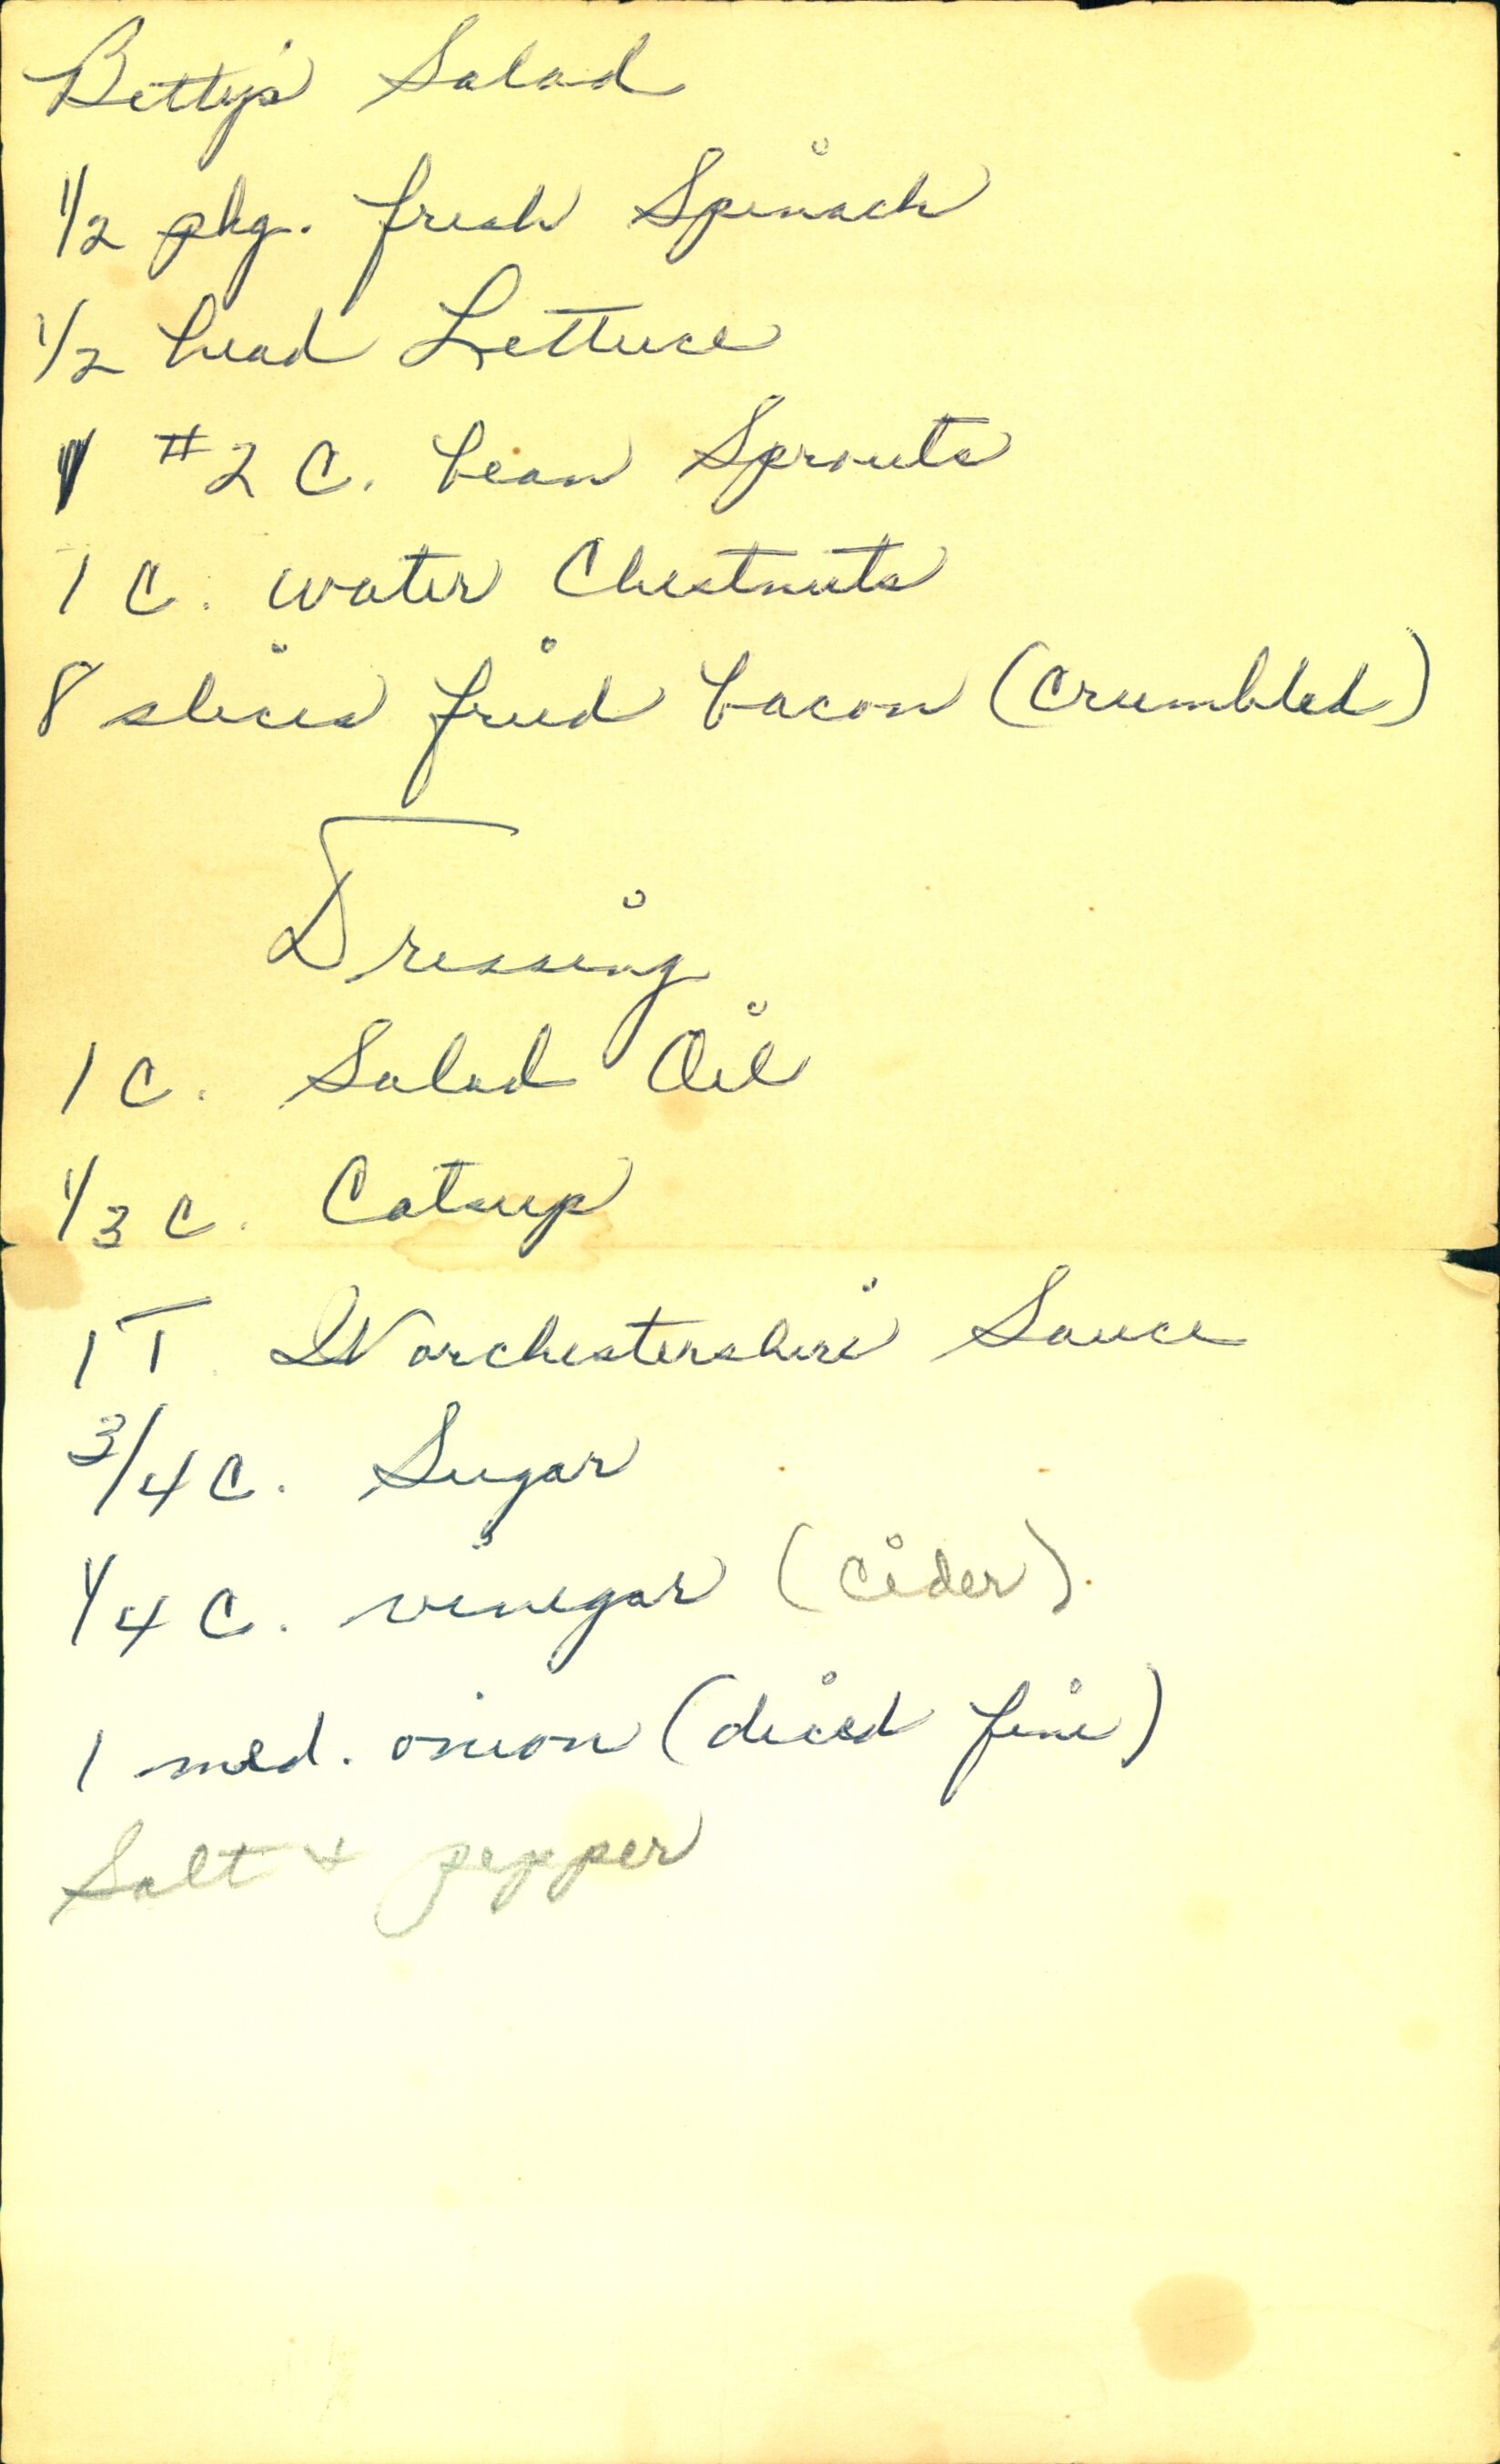 Betty's Salad
1/2 pkg. fresh Spinach
1/2 head Lettuce
1 #2 C. bean Sprouts
1 C. water Chestnuts
8 slices fried bacon (crumbled)
Dressing
1 C. Salad Oil
1/3 C. Catsup
1 T Worchestershire Sauce
3/4 C. Sugar
1/4 C. vinegar (cider)
1 med. onion (diced fine)
Salt + pepper